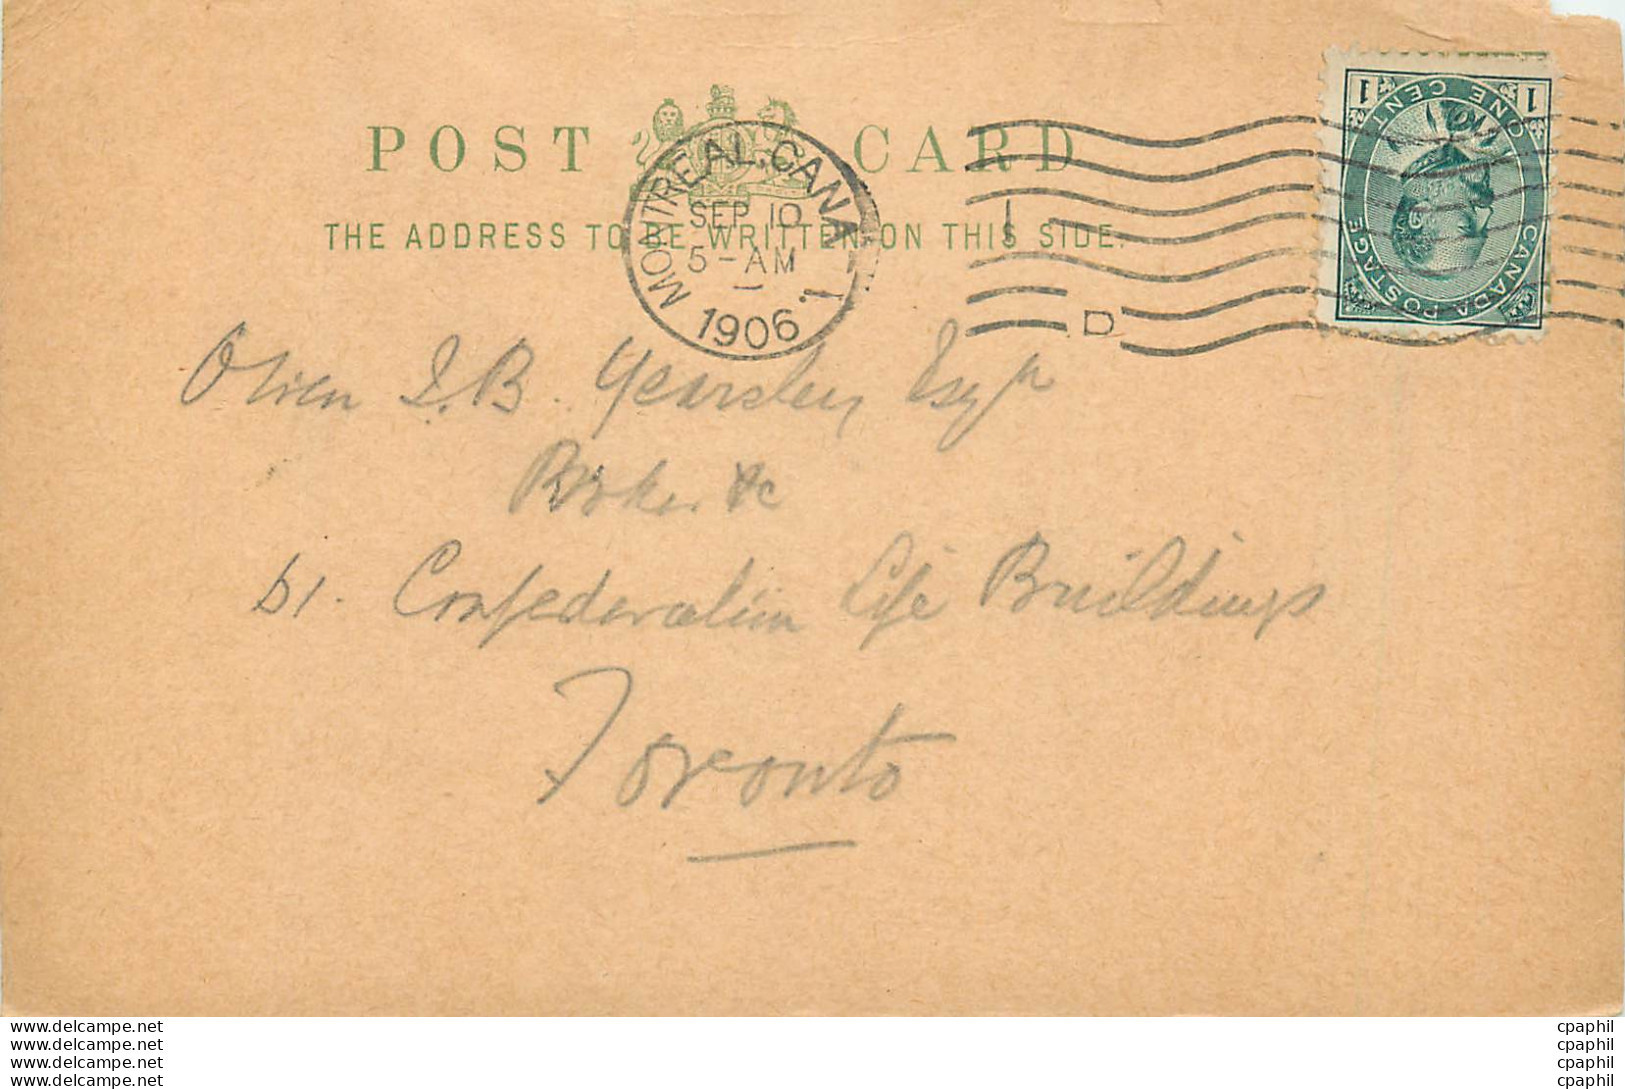 POST CARD
THE ADDRESS TO BE WRITTEN ON THIS SIDE.
MONTREAL, CANA
SEP 10
5-AM
1906
1
D
1 1
ONE CENT
CANADA POSTAGE
J.B. Yearsley Esqr
Broker &c
Confederation Life Buildings
Toronto
www.delcampe.net
www.delcampe.net
www.delcampe.net
www.delcampe.net
cpaphil
cpaphil
cpaphil
cpaphil